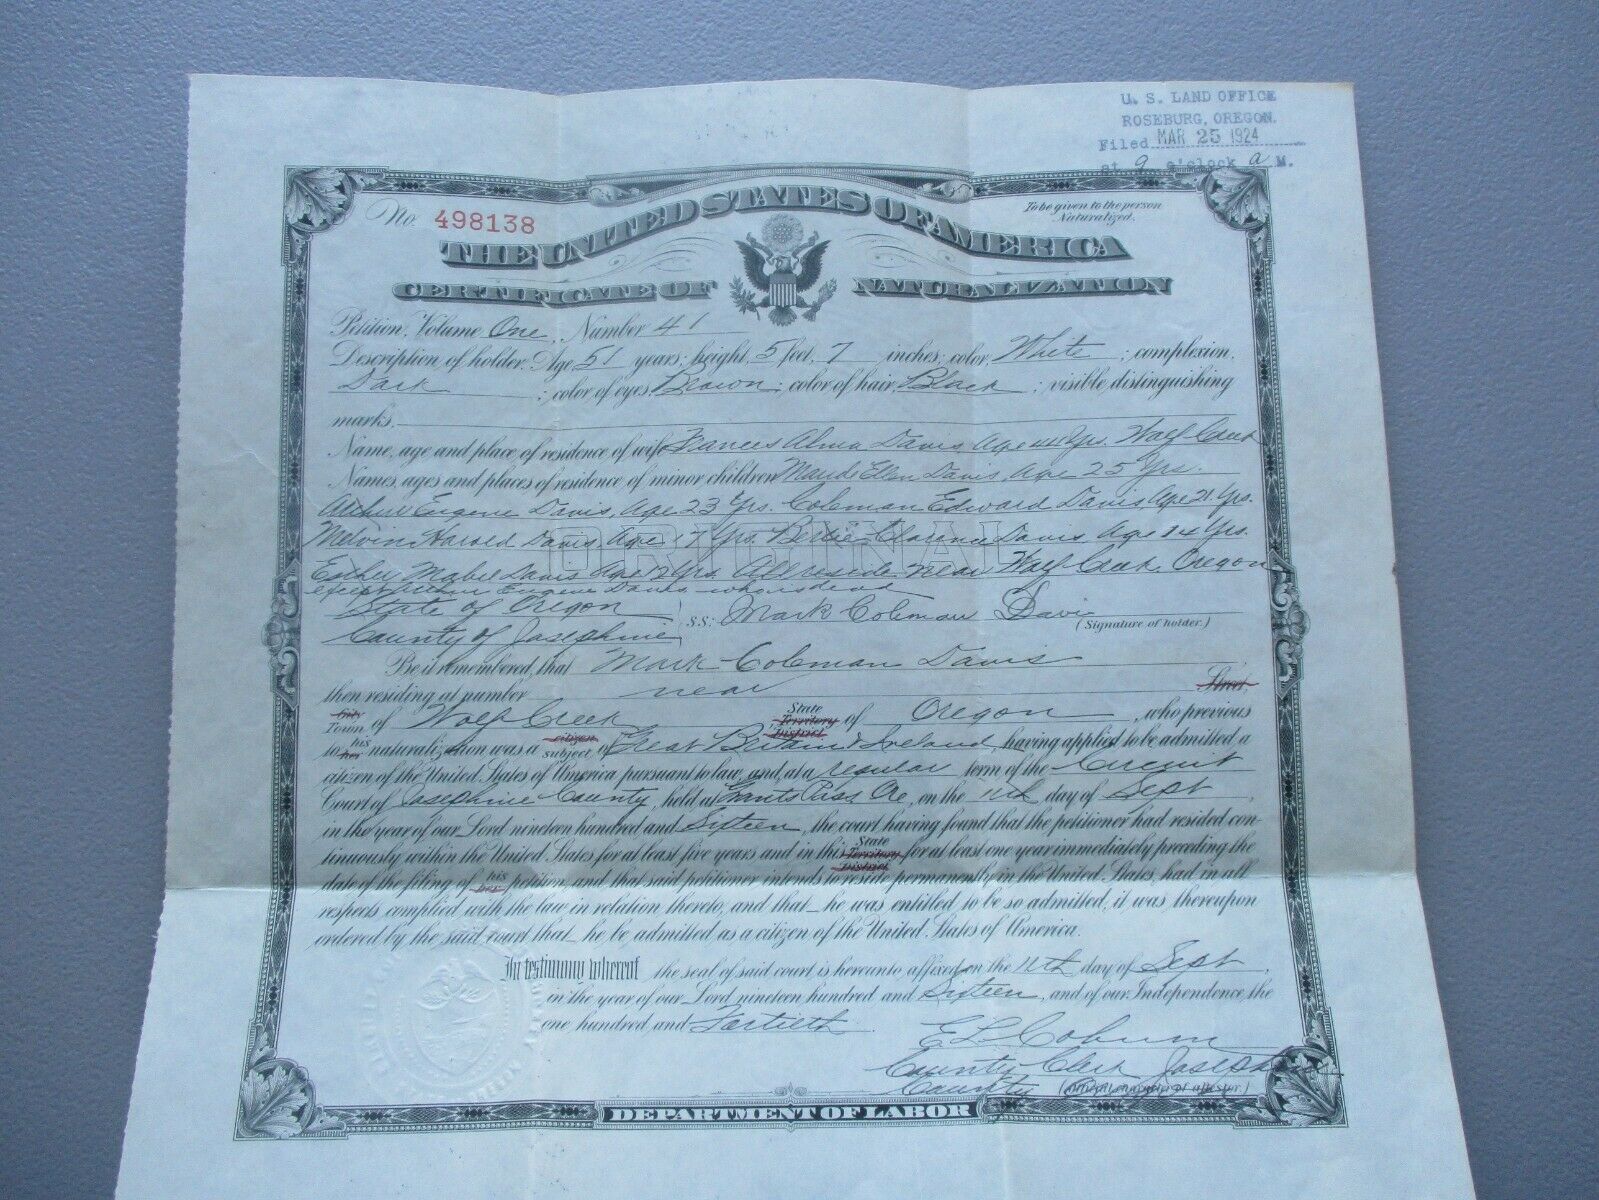 U. S. LAND OFFICE
ROSEBURG, OREGON.
Filed MAR 25 1924
at 9 o'clock a M.
No. 498138
To be given to the person
Naturalized.
THE UNITED STATES OF AMERICA
CERTIFICATE OF NATURALIZATION
Petition, Volume One, Number 41
Description of holder: Age, 51 years; height, 5 feet, 7 inches; color, White; complexion,
Dark; color of eyes, Brown; color of hair, Black; visible distinguishing
marks,
Name, age and place of residence of wife Frances Alma Davis, Age 44 Yrs. Wolf Creek
Names, ages and places of residence of minor children Maude Ellen Davis, Age 25 Yrs.
Arthur Eugene Davis, Age 23 Yrs. Coleman Edward Davis, Age 21 Yrs.
Melvin Harold Davis Age 17 Yrs. Bertie Clarence Davis Age 14 Yrs.
ORIGINAL
Esther Mabel Davis Age 12 Yrs. All reside near Wolf Creek, Oregon
except Arthur Eugene Davis who is dead
State of Oregon
County of Josephine } ss: Mark Coleman Davis
(Signature of holder.)
Be it remembered, that Mark Coleman Davis
then residing at number near Street
City
Town of Wolf Creek State Territory District of Oregon, who previous
to his her naturalization was a citizen subject of Great Britain & Ireland, having applied to be admitted a
citizen of the United States of America pursuant to law, and, at a regular term of the Circuit
Court of Josephine County, held at Grants Pass Ore, on the 11th day of Sept,
in the year of our Lord nineteen hundred and Sixteen, the court having found that the petitioner had resided con-
tinuously within the United States for at least five years and in this State Territory District for at least one year immediately preceding the
date of the filing of his her petition, and that said petitioner intends to reside permanently in the United States, had in all
respects complied with the law in relation thereto, and that he was entitled to be so admitted, it was thereupon
ordered by the said court that he be admitted as a citizen of the United States of America.
In testimony whereof the seal of said court is hereunto affixed on the 11th day of Sept,
in the year of our Lord nineteen hundred and Sixteen, and of our Independence, the
one hundred and Fortieth.
E L Coburn
County Clerk Josephine
County
(Official character of attestor.)
DEPARTMENT OF LABOR